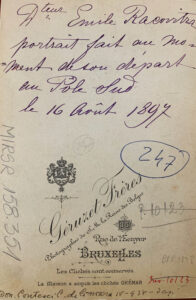 Dteur Emile Racovitza
portrait fait au mo-
ment de son depart
au Pôle Sud
le 16 Août 1897
247
MRSR 158351
Géruzet Frères
Photographes de S. M. la Reine des Belges
Rue de l'Ecuyer
BRUXELLES
Les Clichés sont conservés
La Maison a acquis les clichés GHÉMAR